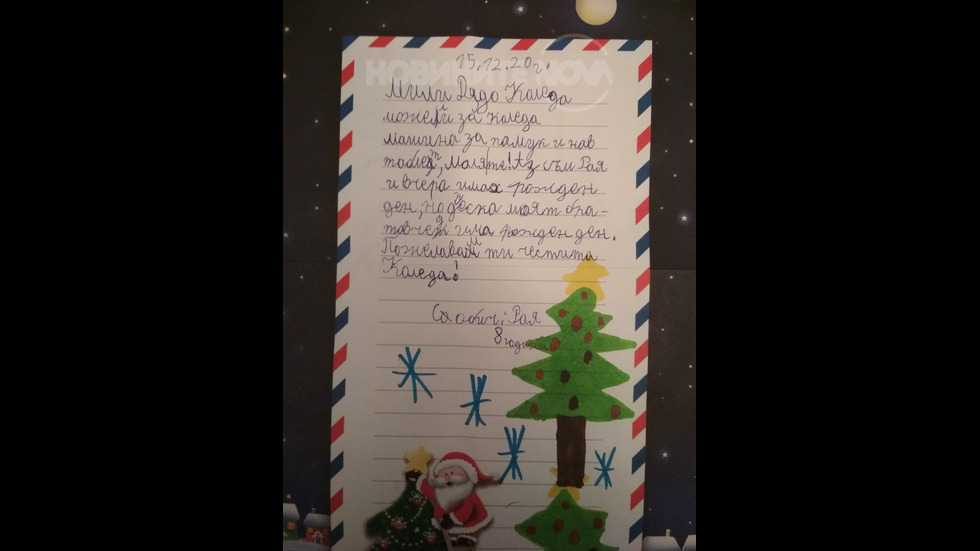 15.12.20г.
НОВИНИТЕ NOVA
Мили Дядо Коледа
може ли за Коледа
машина за памук и нав
таблет, моля те! Аз съм Рая
и вчера имах рожден
ден, но днеска моят бра-
товчед има рожден ден.
Пожелавам ти честита
Коледа!
С обич: Рая
8 години